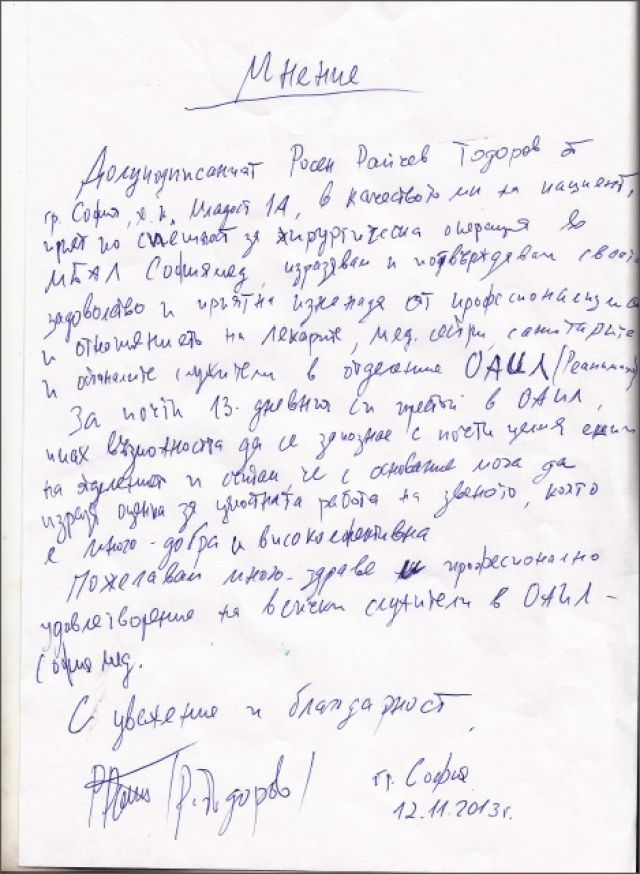 Мнение
Долуподписаният Росен Райчев Тодоров от
гр. София, ж.к. Младост 1А, в качеството ми на пациент,
приет по спешност за хирургическа операция во
МБАЛ Софиямед, изразявам и потвърждавам своето
задоволство и приятна изненада от професионализма
и отношението на лекарите, мед. сестри, санитарите
и останалите служители в отделение ОАИЛ (Реанимация)
За почти 13-дневния си престой в ОАИЛ,
имах възможността да се запозная с почти целия екип
на отделението и считам, че с основание мога да
изразя оценка за цялостната работа на звеното, която
е много-добра и високоефективна
Пожелавам много-здраве и професионално
удовлетворение на всички служители в ОАИЛ -
София мед.
С уважение и благодарност
/Р. Тодоров/
гр. София
12.11.2013г.